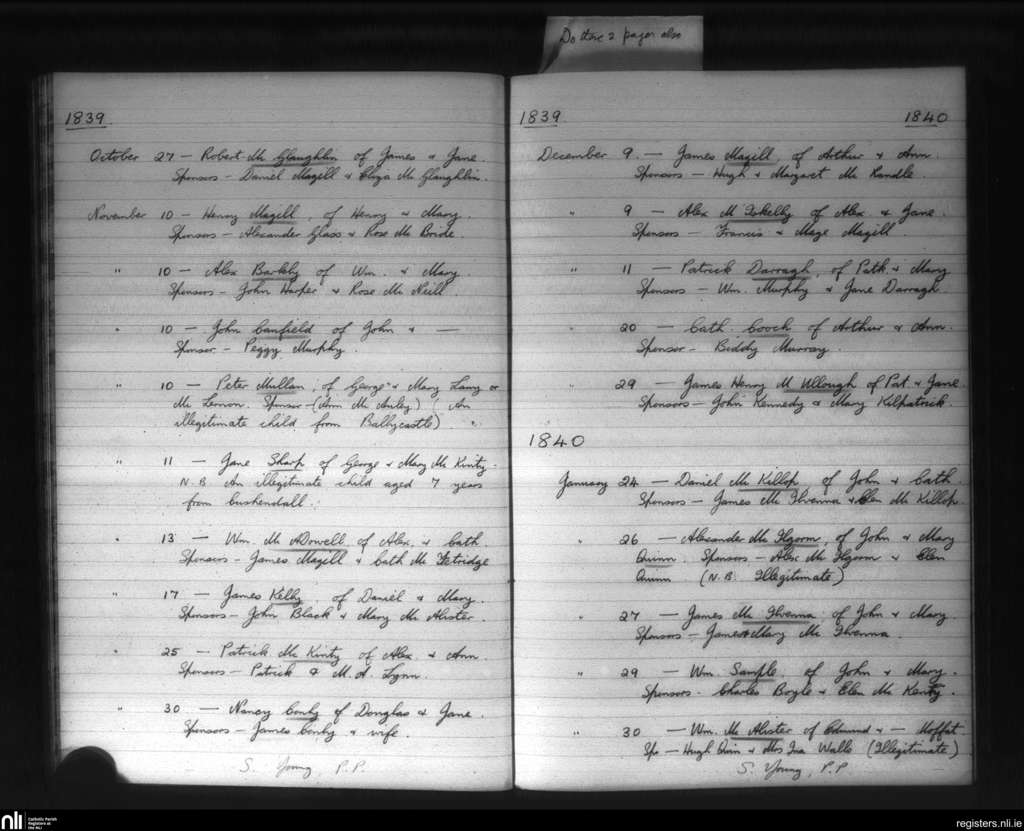 Do these 2 pages also
1839
October 27 — Robert Mc Glaughlin of James & Jane.
Sponsors — Daniel Magill & Eliza Mc Glaughlin.
November 10 — Henry Magill, of Henry & Mary.
Sponsors — Alexander Glass & Rose Mc Bride.
" 10 — Alex Barkly of Wm. & Mary.
Sponsors — John Harper & Rose Mc Neill.
" 10 — John Canfield of John & —
Sponsor — Peggy Murphy.
" 10 — Peter Mullan, of George & Mary Lavy or
Mc Lernon. Sponsor — (Ann Mc Auley) (An
illegitimate child from Ballycastle)
" 11 — Jane Sharp of George & Mary Mc Kinty.
N.B. An illegitimate child aged 7 years
from Cushendall.
" 13 — Wm. Mc ADowell of Alex. & Cath
Sponsors — James Magill & Cath Mc Fetridge
" 17 — James Kelly, of Daniel & Mary.
Sponsors — John Black & Mary Mc Alister.
" 25 — Patrick Mc Kinty of Alex. & Ann.
Sponsors — Patrick & M. A. Lynn.
" 30 — Nancy Conby of Douglas & Jane.
Sponsors — James Conby & wife.
S. Young, P.P.
1839 1840
December 9. — James Magill, of Arthur & Ann.
Sponsors — Hugh & Margaret Mc Kandle.
" 9 — Alex M Iskelly of Alex. & Jane.
Sponsors — Francis & Mage Magill.
" 11 — Patrick Darragh, of Patk. & Mary
Sponsors — Wm. Murphy & Jane Darragh.
20 — Cath. Cooch of Arthur & Ann.
Sponsor — Biddy Murray.
" 29 — James Henry M Ullough of Pat & Jane.
Sponsors — John Kennedy & Mary Kilpatrick.
1840
January 24 — Daniel Mc Killop of John & Cath.
Sponsors — James Mc Ilvenna & Elen Mc Killop.
" 26 — Alexander Mc Ilgorm of John & Mary
Quinn. Sponsors — Alex Mc Ilgorm & Elen
Quinn (N.B. Illegitimate)
" 27 — James Mc Ilvenna of John & Mary.
Sponsors — James & Mary Mc Ilvenna.
" 29 — Wm. Sample of John & Mary.
Sponsors - Charles Boyle & Elen Mc Kenty.
" 30 — Wm. Mc Alister of Edmund & — Moffat.
Spo — Hugh Quin & Mrs Ina Walls (Illegitimate)
S. Young, P.P
nli Catholic Parish
Registers at
the NLI
registers.nli.ie